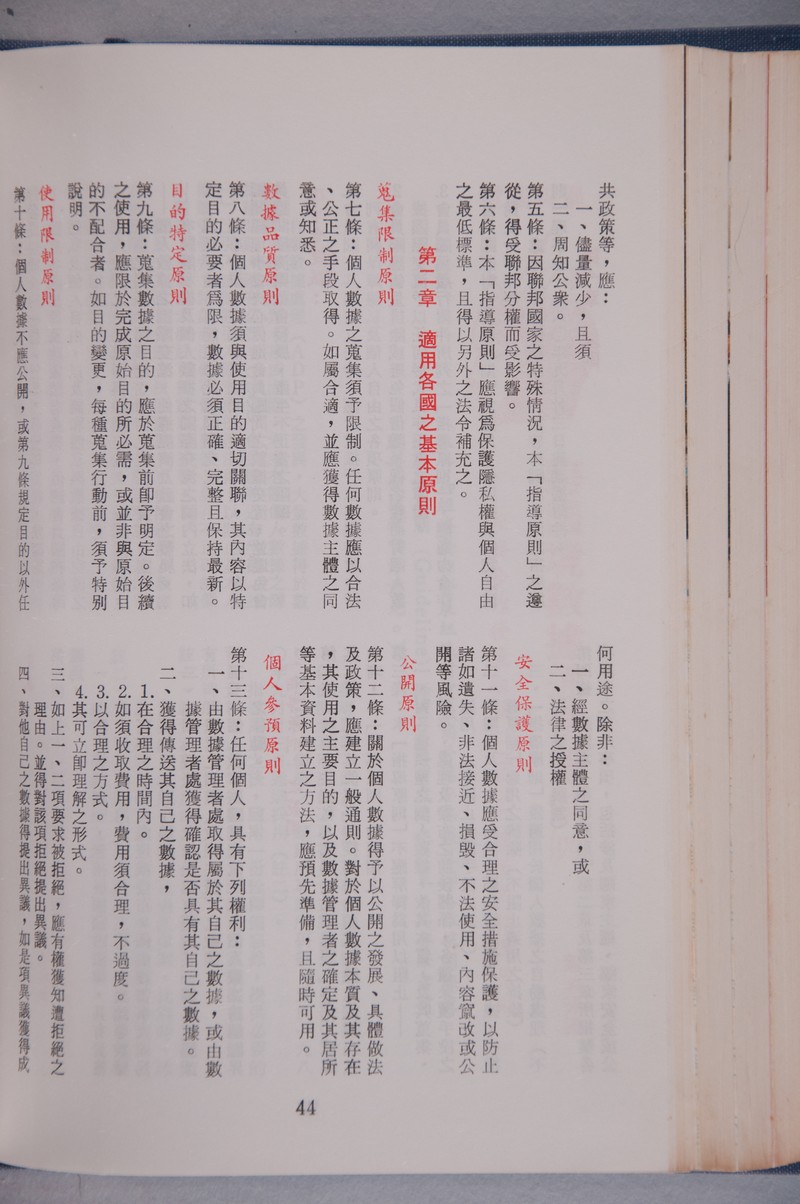 共政策等，應：
一、儘量減少，且須
二、周知公衆。
第五條：因聯邦國家之特殊情況，本「指導原則」之遵
從，得受聯邦分權而受影響。
第六條：本「指導原則」應視爲保護隱私權與個人自由
之最低標準，且得以另外之法令補充之。
第二章　適用各國之基本原則
蒐集限制原則
第七條：個人數據之蒐集須予限制。任何數據應以合法
、公正之手段取得。如屬合適，並應獲得數據主體之同
意或知悉。
數據品質原則
第八條：個人數據須與使用目的適切關聯，其內容以特
定目的必要者爲限，數據必須正確、完整且保持最新。
目的特定原則
第九條：蒐集數據之目的，應於蒐集前卽予明定。後續
之使用，應限於完成原始目的所必需，或並非與原始目
的不配合者。如目的變更，每種蒐集行動前，須予特別
說明。
使用限制原則
第十條：個人數據不應公開，或第九條規定目的以外任
何用途。除非：
一、經數據主體之同意，或
二、法律之授權
安全保護原則
第十一條：個人數據應受合理之安全措施保護，以防止
諸如遺失、非法接近、損毀、不法使用、內容竄改或公
開等風險。
公開原則
第十二條：關於個人數據得予以公開之發展、具體做法
及政策，應建立一般通則。對於個人數據本質及其存在
，其使用之主要目的，以及數據管理者之確定及其居所
等基本資料建立之方法，應預先準備，且隨時可用。
個人參預原則
第十三條：任何個人，具有下列權利：
一、由數據管理者處取得屬於其自己之數據，或由數
據管理者處獲得確認是否具有其自己之數據。
二、獲得傳送其自己之數據，
1.在合理之時間內。
2.如須收取費用，費用須合理，不過度。
3.以合理之方式。
4.其可立卽理解之形式。
三、如上一、二項要求被拒絕，應有權獲知遭拒絕之
理由。並得對該項拒絕提出異議。
四、對他自己之數據得提出異議，如是項異議獲得成
44